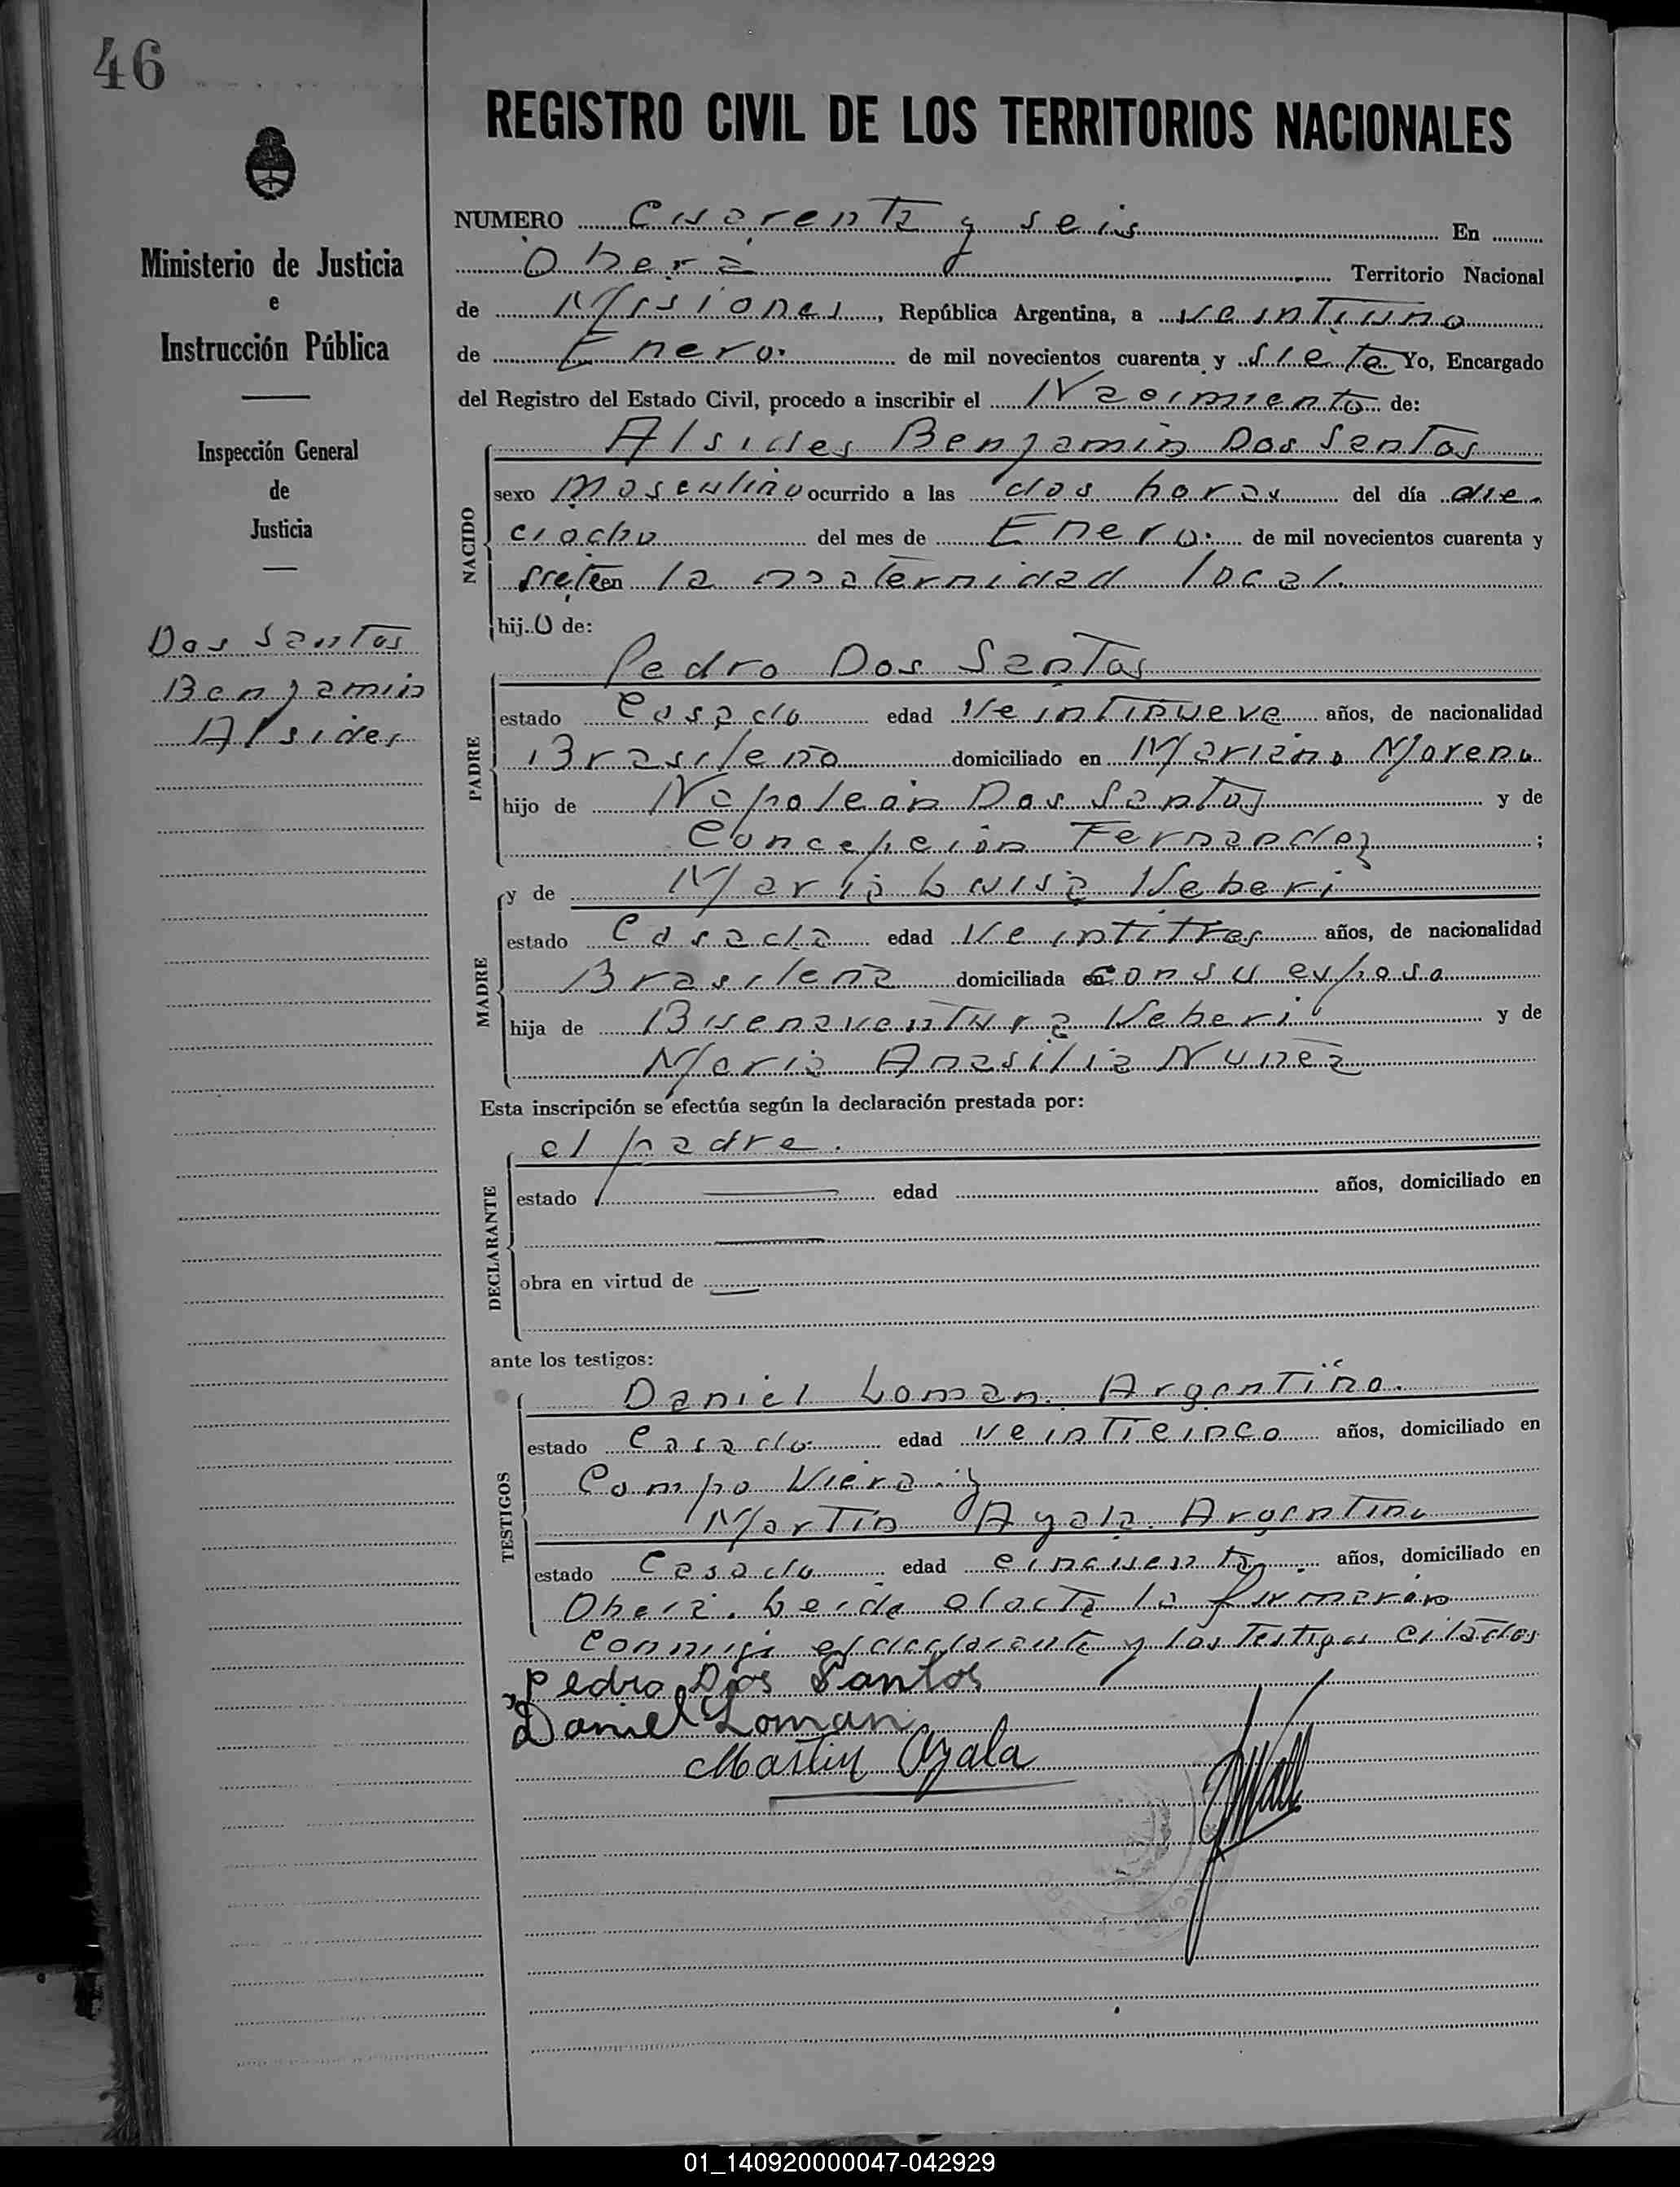 46
REGISTRO CIVIL DE LOS TERRITORIOS NACIONALES
Ministerio de Justicia
e
Instrucción Pública
Inspección General
de
Justicia
Dos Santos
Benjamin
Alsides
NUMERO Cuarenta y seis En
Oberá Territorio Nacional
de Misiones, República Argentina, a veintiuno
de Enero de mil novecientos cuarenta y siete Yo, Encargado
del Registro del Estado Civil, procedo a inscribir el Nacimiento de:
NACIDO
Alsides Benjamin Dos Santos
sexo Masculino ocurrido a las dos horas del día die-
ciocho del mes de Enero de mil novecientos cuarenta y
siete en la maternidad local.
hijo de:
PADRE
Pedro Dos Santos
estado Casado edad Veintinueve años, de nacionalidad
Brasileño domiciliado en Mariano Moreno
hijo de Napoleón Dos Santos y de
Concepción Fernandez;
MADRE
y de María Luisa Veberi
estado Casada edad Veintitres años, de nacionalidad
Brasileña domiciliada con su esposo
hija de Buenaventura Veberi y de
María Anasilia Nuñez
Esta inscripción se efectúa según la declaración prestada por:
DECLARANTE
el padre.
estado edad años, domiciliado en
obra en virtud de
ante los testigos:
TESTIGOS
Daniel Loman. Argentino.
estado Casado edad veinticinco años, domiciliado en
Campo Viera y
Martín Ayala. Argentino
estado Casado edad cincuenta años, domiciliado en
Oberá. Leída el acta la firmaron
conmigo el declarante y los testigos citados
Pedro Dos Santos
Daniel Loman
Martin Ayala
01_140920000047-042929